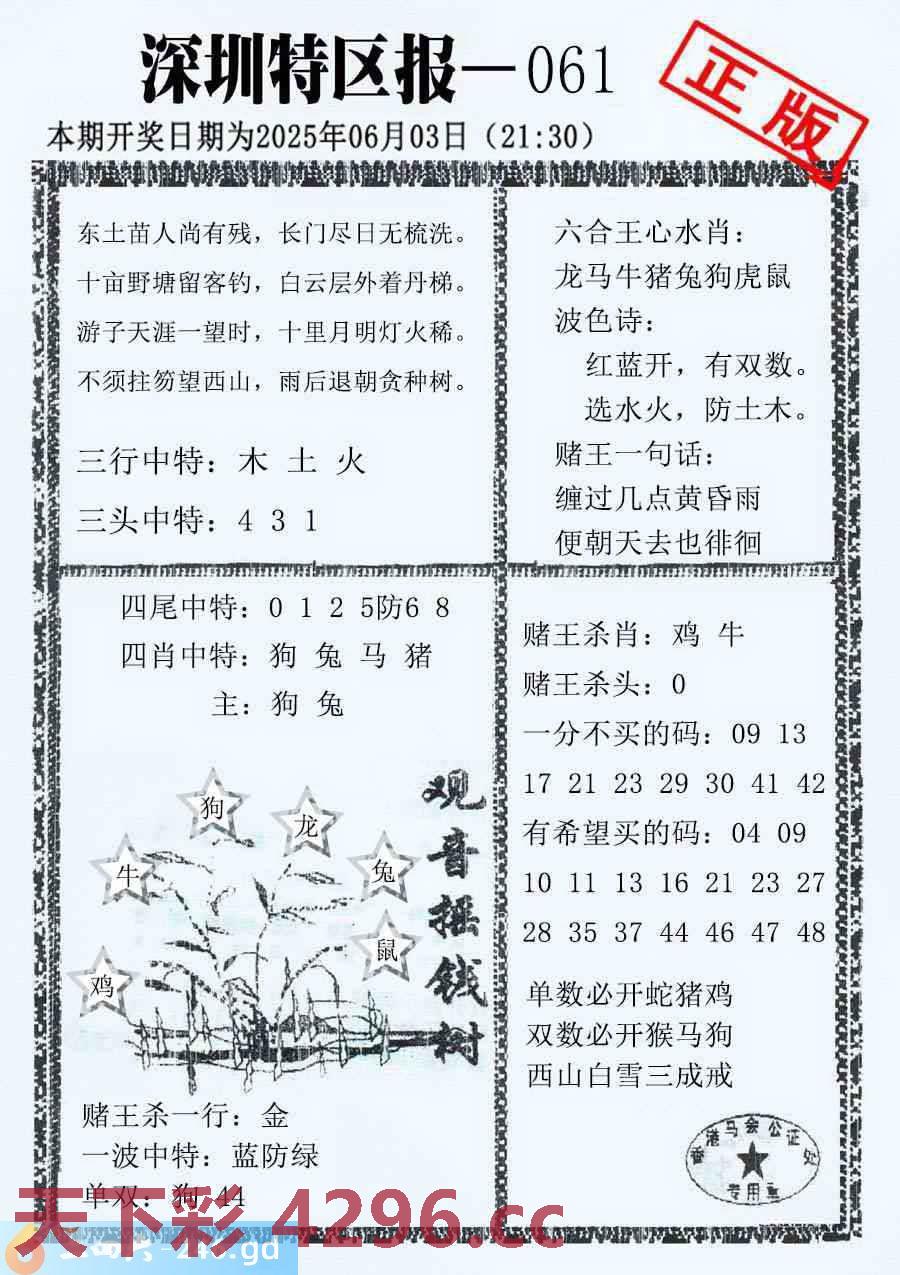 深圳特区报—061
正版
本期开奖日期为2025年06月03日（21:30）
东土苗人尚有残，长门尽日无梳洗。
十亩野塘留客钓，白云层外着丹梯。
游子天涯一望时，十里月明灯火稀。
不须拄笏望西山，雨后退朝贪种树。
三行中特：木 土 火
三头中特：4 3 1
六合王心水肖：
龙马牛猪兔狗虎鼠
波色诗：
红蓝开，有双数。
选水火，防土木。
赌王一句话：
缠过几点黄昏雨
便朝天去也徘徊
四尾中特：0 1 2 5防6 8
四肖中特：狗 兔 马 猪
主：狗 兔
观音摇钱树
狗
龙
牛
兔
鼠
鸡
赌王杀一行：金
一波中特：蓝防绿
单双：狗 44
赌王杀肖：鸡 牛
赌王杀头：0
一分不买的码：09 13
17 21 23 29 30 41 42
有希望买的码：04 09
10 11 13 16 21 23 27
28 35 37 44 46 47 48
单数必开蛇猪鸡
双数必开猴马狗
西山白雪三成戒
香港马会公证处
专用章
天下彩 4296.cc